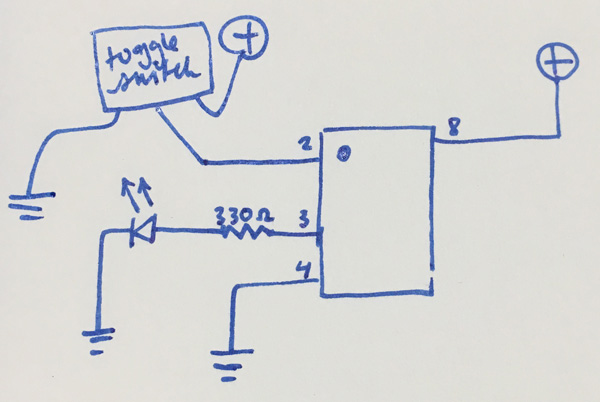 toggle
switch
2
8
330Ω
3
4